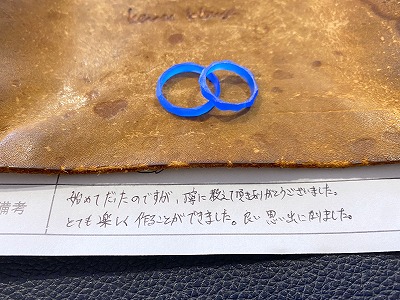 備考
始めてだったのですが、寧に教えて頂きありがとうございました。
とても楽しく作ることができました。良い思い出になりました。